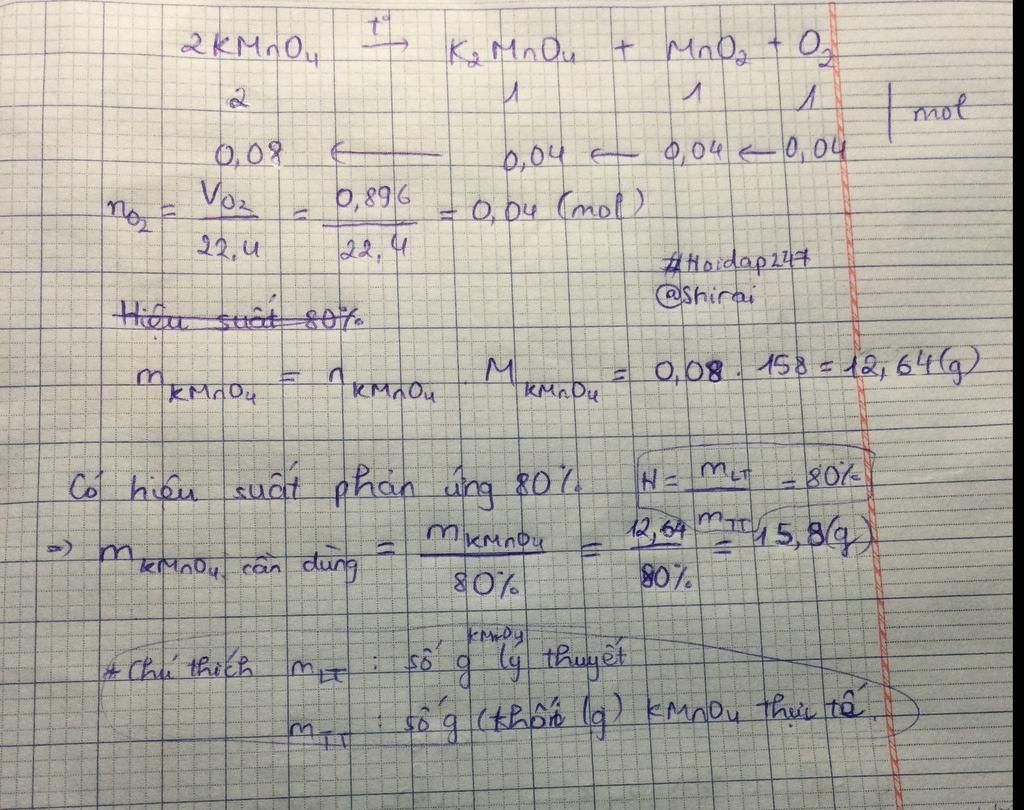 2KMnO₄ t° → K₂MnO₄ + MnO₂ + O₂
2 1 1 1 | mol
0,08 ← 0,04 ← 0,04 ← 0,04
nO₂ = VO₂/22,4 = 0,896/22,4 = 0,04 (mol)
#Hoidap247
@Shirai
Hiệu suất 80%
mKMnO₄ = nKMnO₄ . MKMnO₄ = 0,08 . 158 = 12,64(g)
Có hiệu suất phản ứng 80% H = mLT/mTT = 80%
=> mKMnO₄ cần dùng = mKMnO₄/80% = 12,64/80% = 15,8(g)
* Chú thích mLT : số g KMnO₄ lý thuyết
mTT : số g (khối lg) KMnO₄ thực tế.